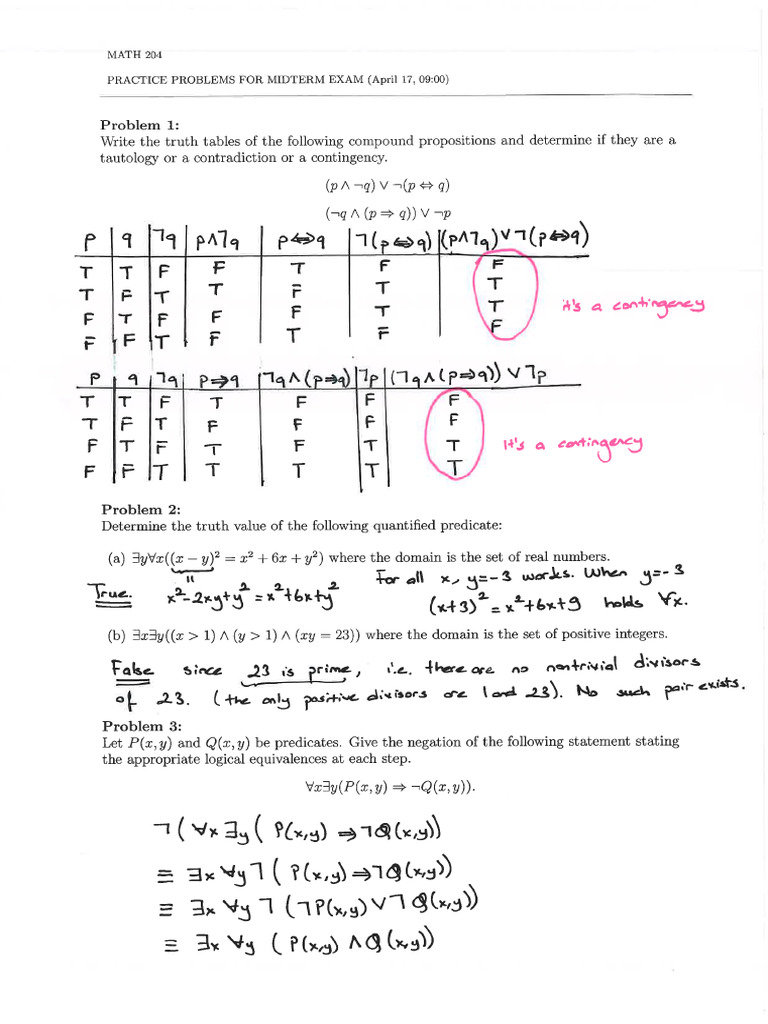 MATH 204
PRACTICE PROBLEMS FOR MIDTERM EXAM (April 17, 09:00)
Problem 1:
Write the truth tables of the following compound propositions and determine if they are a
tautology or a contradiction or a contingency.
(p ∧ ¬q) ∨ ¬(p ⇔ q)
(¬q ∧ (p ⇒ q)) ∨ ¬p
p | q | ¬q | p∧¬q | p⇔q | ¬(p⇔q) | (p∧¬q)∨¬(p⇔q)
T | T | F | F | T | F | F
T | F | T | T | F | T | T
F | T | F | F | F | T | T
F | F | T | F | T | F | F
it's a contingency
p | q | ¬q | p⇒q | ¬q∧(p⇒q) | ¬p | (¬q∧(p⇒q)) ∨ ¬p
T | T | F | T | F | F | F
T | F | T | F | F | F | F
F | T | F | T | F | T | T
F | F | T | T | T | T | T
It's a contingency
Problem 2:
Determine the truth value of the following quantified predicate:
(a) ∃y∀x((x − y)² = x² + 6x + y²) where the domain is the set of real numbers.
True. x²-2xy+y² = x²+6x+y² For all x, y=-3 works. When y=-3
(x+3)² = x²+6x+9 holds ∀x.
(b) ∃x∃y((x > 1) ∧ (y > 1) ∧ (xy = 23)) where the domain is the set of positive integers.
False since 23 is prime, i.e. there are no nontrivial divisors
of 23. (the only positive divisors are 1 and 23). No such pair exists.
Problem 3:
Let P(x, y) and Q(x, y) be predicates. Give the negation of the following statement stating
the appropriate logical equivalences at each step.
∀x∃y(P(x, y) ⇒ ¬Q(x, y)).
¬(∀x∃y( P(x,y) ⇒¬Q(x,y))
≡ ∃x ∀y ¬( P(x,y)⇒¬Q(x,y))
≡ ∃x ∀y ¬(¬P(x,y)∨¬Q(x,y))
≡ ∃x ∀y ( P(x,y) ∧Q(x,y))